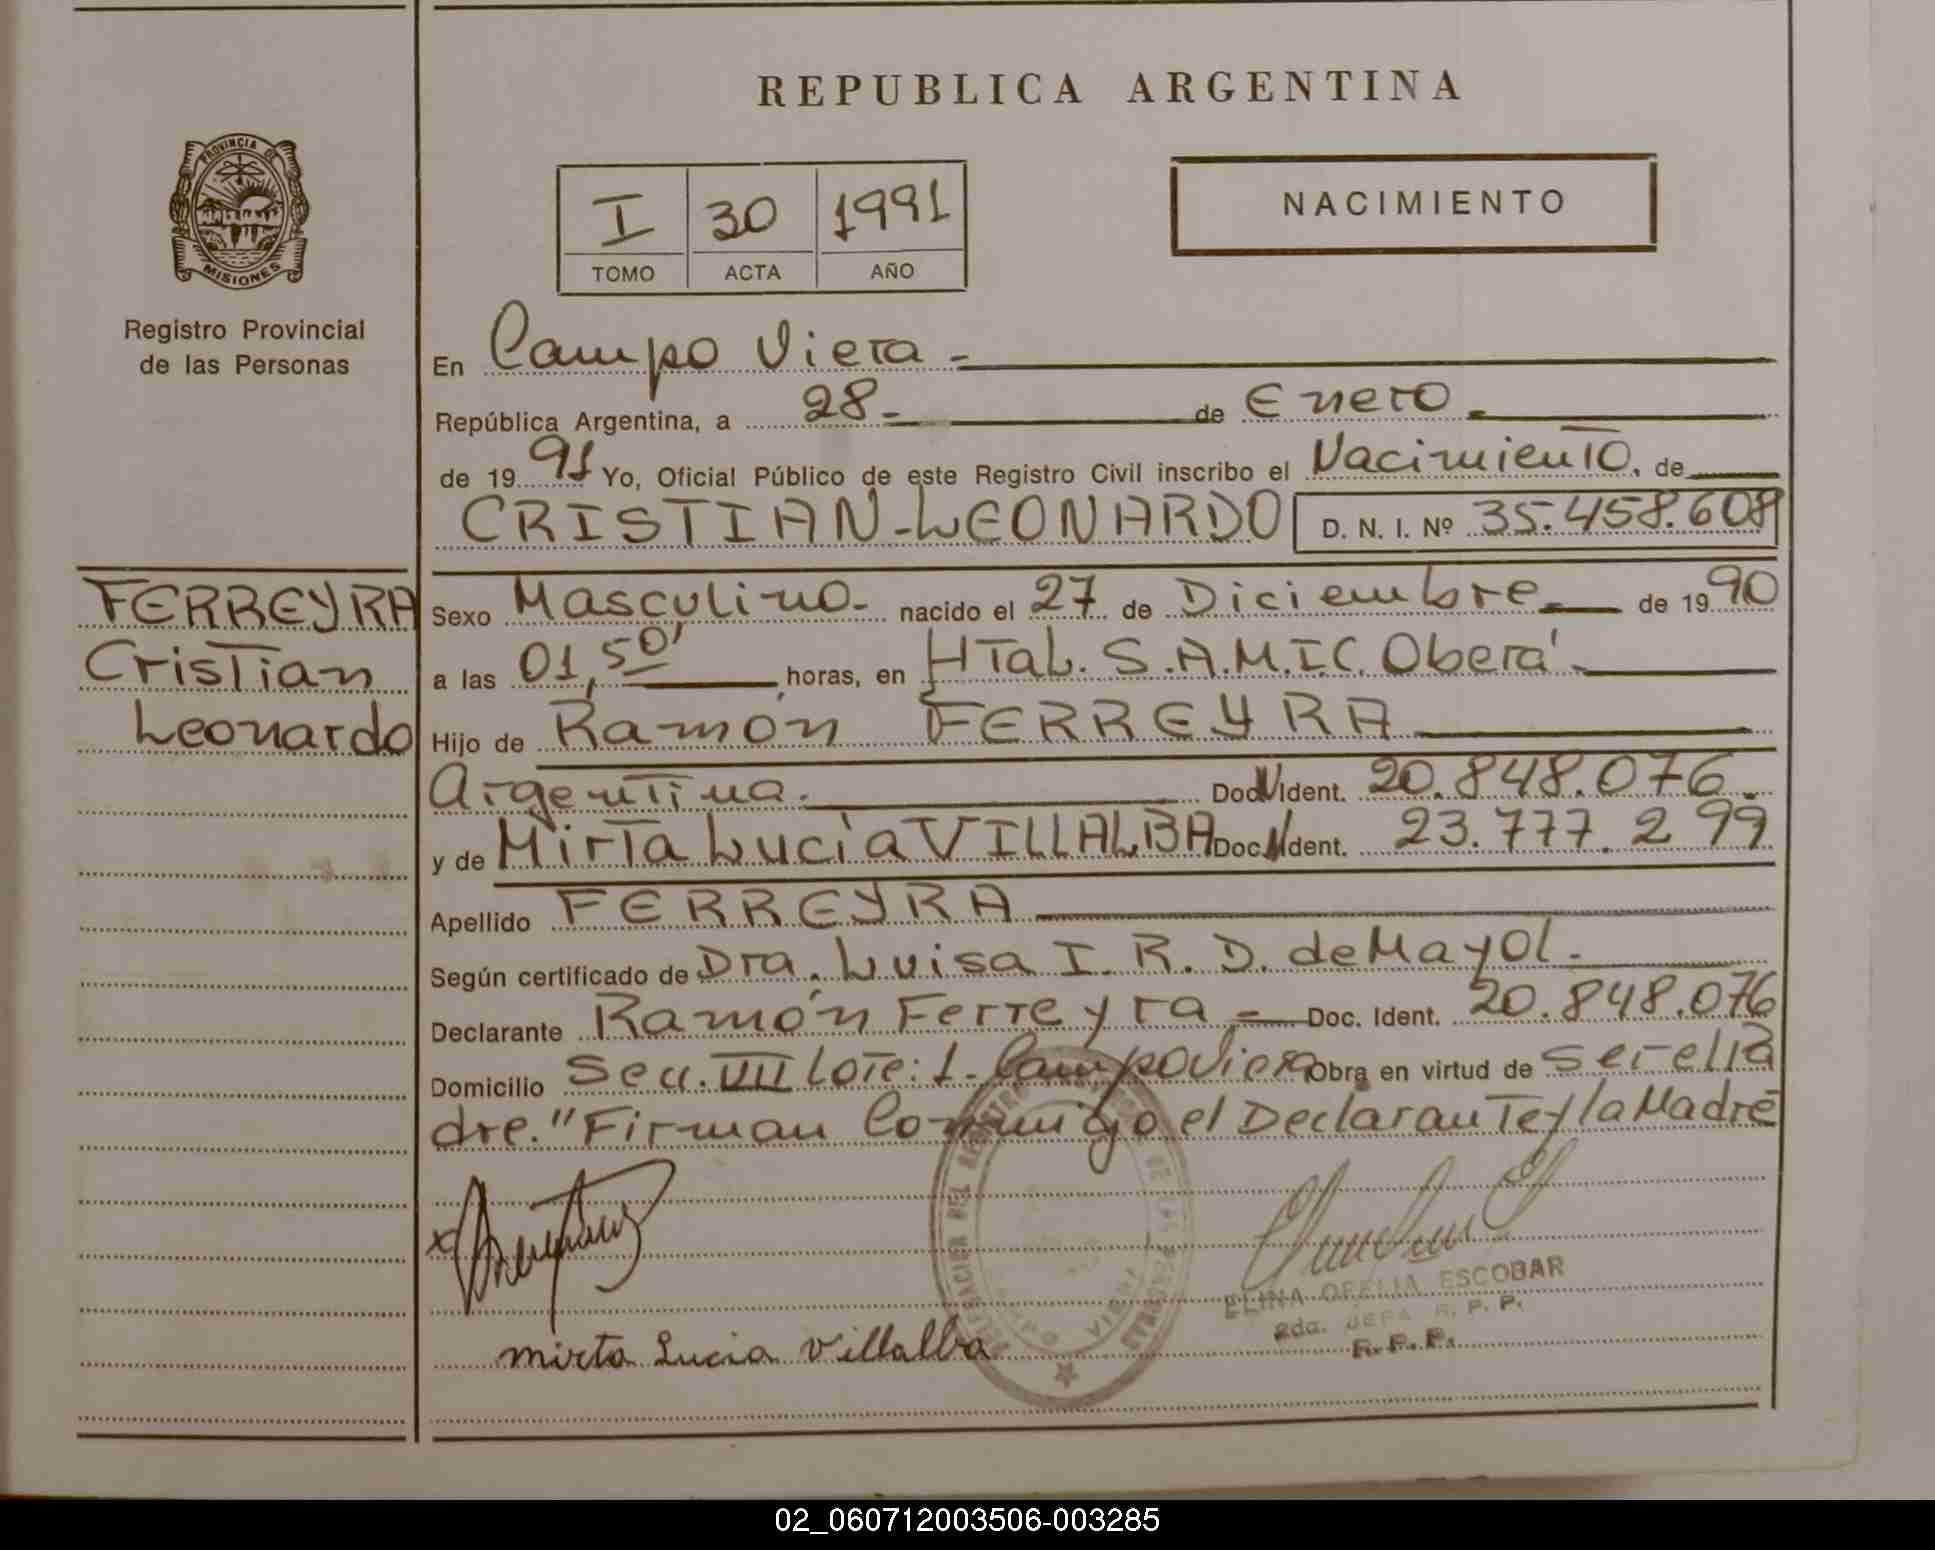 REPUBLICA ARGENTINA
PROVINCIA DE MISIONES
Registro Provincial
de las Personas
I 30 1991
TOMO ACTA AÑO
NACIMIENTO
En Campo Viera -
República Argentina, a 28- de Enero.
de 1991 Yo, Oficial Público de este Registro Civil inscribo el Nacimiento, de
CRISTIAN-LEONARDO D. N. I. Nº 35.458.608
FERREYRA
Cristian
Leonardo
Sexo Masculino- nacido el 27 de Diciembre. de 1990
a las 01,50' horas, en HTal. S.A.M.I.C. Oberá.
Hijo de Ramón FERREYRA
Argentina. Doc. Ident. 20.848.076.
y de Mirta Lucía VILLALBA Doc. Ident. 23.777.299
Apellido FERREYRA
Según certificado de Dra. Luisa I. R. D. de Mayol.
Declarante Ramón Ferreyra - Doc. Ident. 20.848.076
Domicilio Secc. VII Lote: 1- Campo Viera Obra en virtud de ser el Pa
dre." Firman Conmigo el Declarante y la Madre
Mirta Lucia Villalba
ELINA OFELIA ESCOBAR
2da. JEFA R. P. P.
R.P.P.
02_060712003506-003285